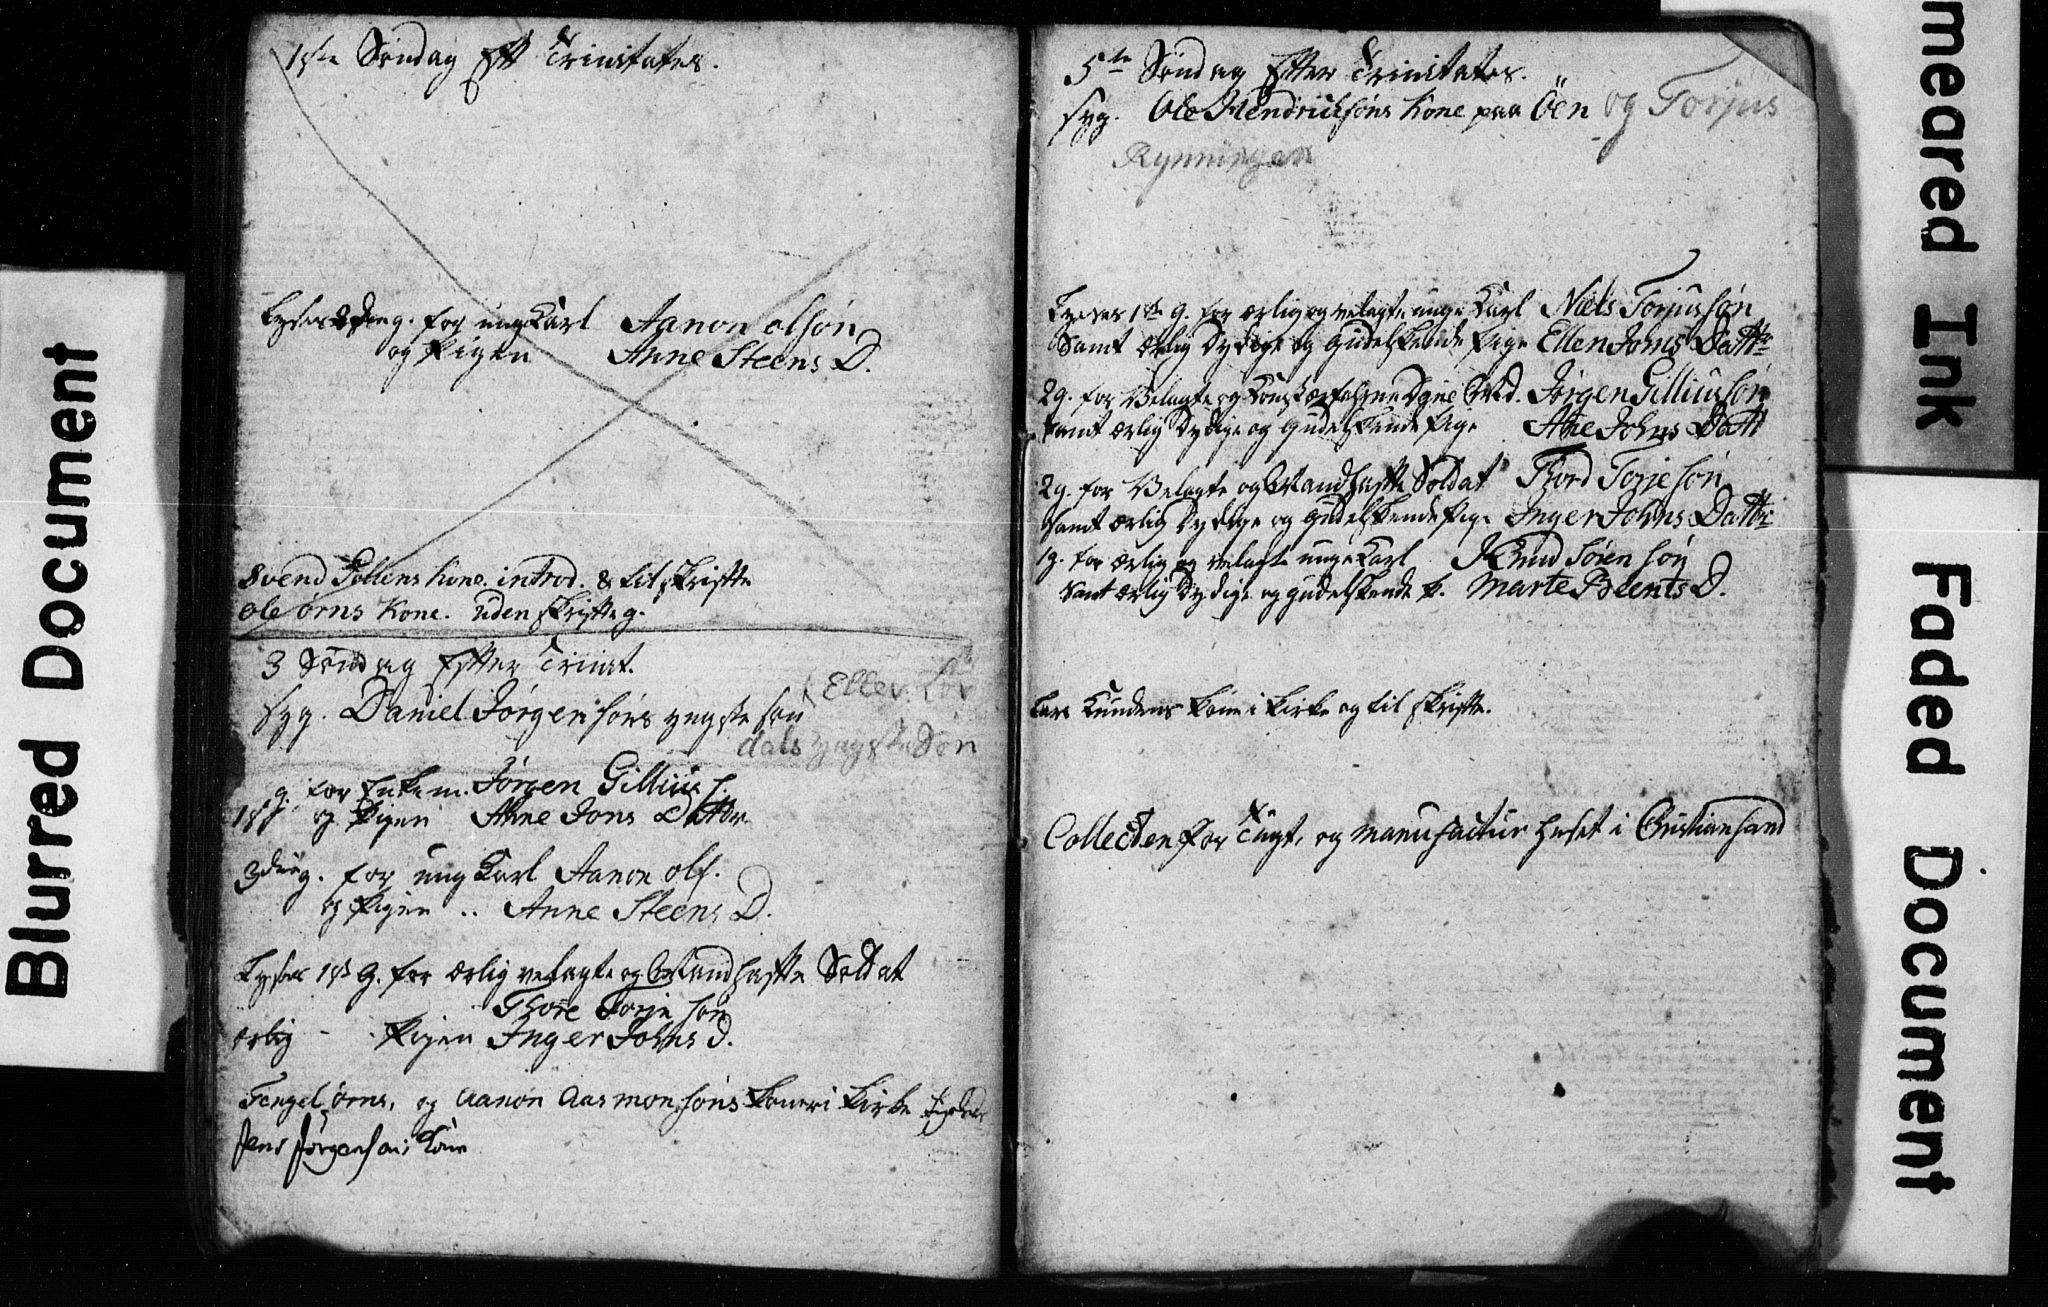 1ste Søndag Eft Trinitates.
Lyses 2den g. for ung Karl Aanon olsøn
og Pigen Anne Steens D.
Svend Kone. introd. & til skrifte
ole ørns Kone. uden skrifte g.
3 Søndag Efter Trinit.
(Eller Lør
Syg. Daniel Jørgensøns yngste søn
dals yngste Søn
1ste g. for Enkem. Jørgen Gillius S.
og Pigen Anne Jons Datter
3die g. for ung Karl Aanon ols.
og Pigen .. Anne Steens D.
Lyses 1ste g. for ærlig velagte og Mandhafte Soldat
Thore Torje søn
ærlig - Pigen Inger Johns D.
Tengel ørns, og Aanon Aasmonsøns koner i kirke
Jens Jørgensøns Kone
5te Søndag Efter Trinitates.
syg. Ole Hendrichsøns Kone paa Öen og Torjus
Rynningen
Lyeses 1ste g. for ærlig og velagte unge Karl Niels Torjussøn
Samt ærlig Dydige og Gudelskende Pige Ellen Jons Dattr
2g. for Velagte og Mand. Jørgen Gilliussøn
samt ærlig Dydige og Gudelskende Pige Ane Johns Datt
2g. for Velagte og Mandhafte Soldat Thord Torjesøn
samt ærlig Dydige og Gudelskende Pige Inger Johns Dattr
1g. for ærlig og velagte unge Karl Knud Sørensøn
Samt ærlig Dydige og gudelskende P. Marte Beents D.
Lars Knudens kone i kirke og til skrifte.
Collecten for Tugt, og manufactur huset i Christiansand
Blurred Document
meared Ink
Faded Document